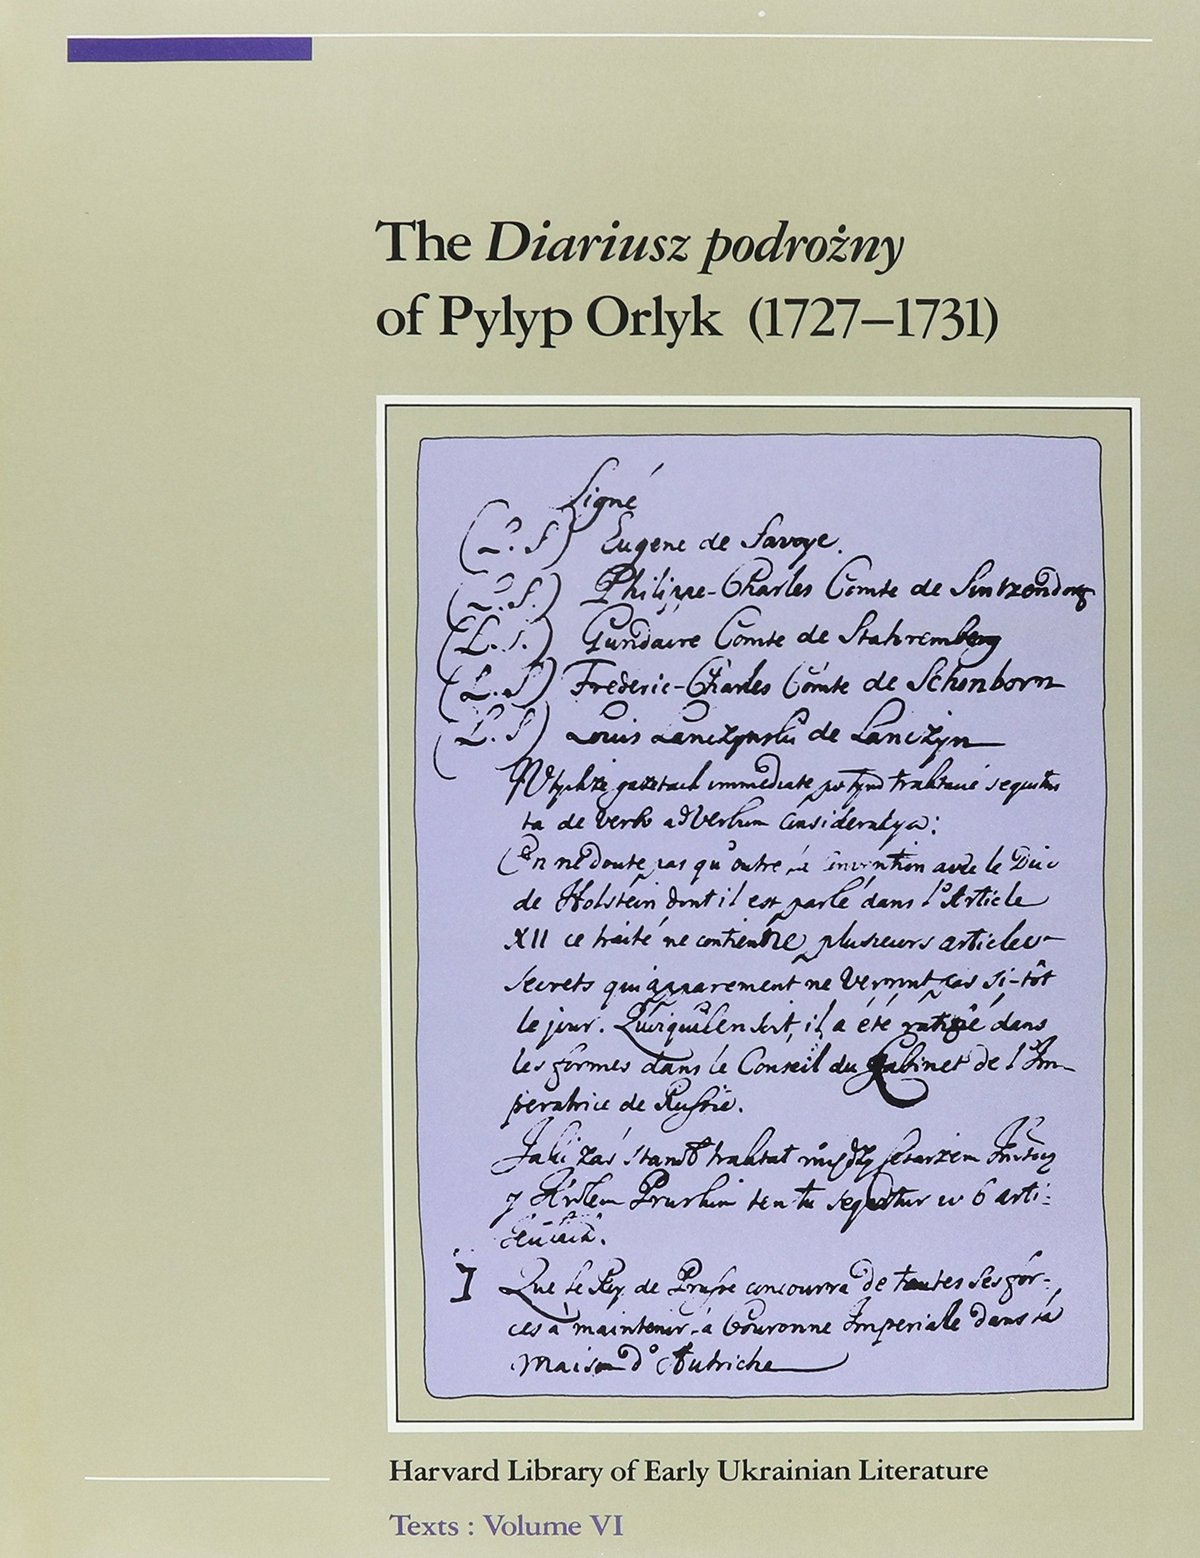 The Diariusz podrożny
of Pylyp Orlyk (1727–1731)
Signé
(L. S) Eugene de Savoye.
(L. S.) Philippe-Charles Comte de Sintzendorf
(L. S.) Gundaire Comte de Stahremberg
(L. S) Frederic-Charles Comte de Schonborn
(L. S) Louis Lanczynski de Lanczyn
W tychże gazetach immediate po tym traktacie sequitur
ta de verbo ad verbum consideratya:
On ne doute pas qu'outre la Convention avec le Duc
de Holstein dont il est parlé dans l'Article
XII ce traité ne contienne plusieurs articles
secrets qui apparement ne verront pas si-tôt
le jour. Quoiqu'il en soit, il a été ratifié dans
les formes dans le Conseil du Cabinet de l'Im-
peratrice de Russie.
Jaki zaś stanoł traktat między Cesarzem
y Krolem Pruskim ten tu sequitur w 6 arti-
I Que le Roy de Prusse concourra de toutes ses for-
ces à maintenir la Couronne Imperiale dans la
Maison d'Autriche
Harvard Library of Early Ukrainian Literature
Texts : Volume VI